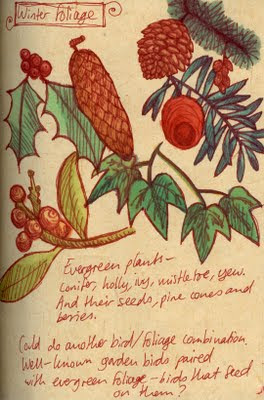 Winter Foliage
Evergreen plants -
conifer, holly, ivy, mistletoe, yew.
And their seeds, pine cones and
berries.
Could do another bird/foliage combination.
Well-known garden birds paired
with evergreen foliage - birds that feed
on them?